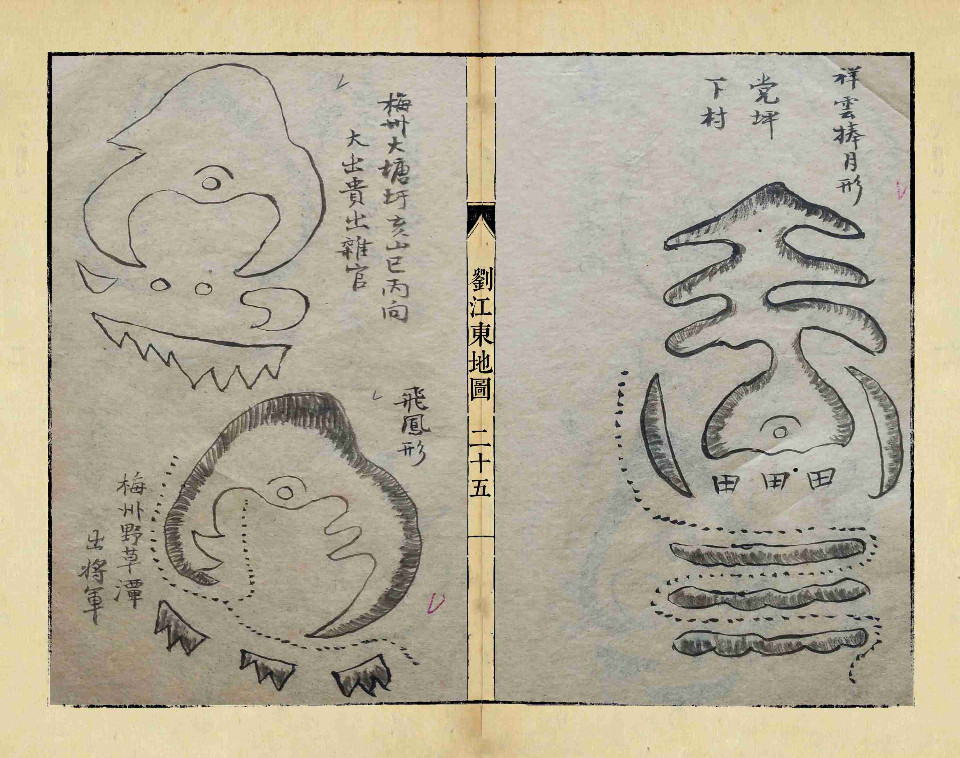 祥雲捧月形
党坪
下村
田 田 田
劉江東地圖 二十五
梅州大塘圩亥山巳丙向
大出貴出雜官
飛鳳形
梅州野草潭
出將軍